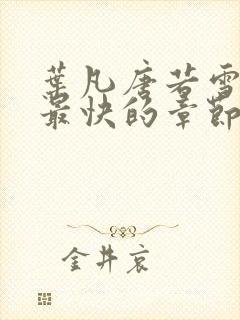 葉凡唐若雪
最快的章節
金井哀